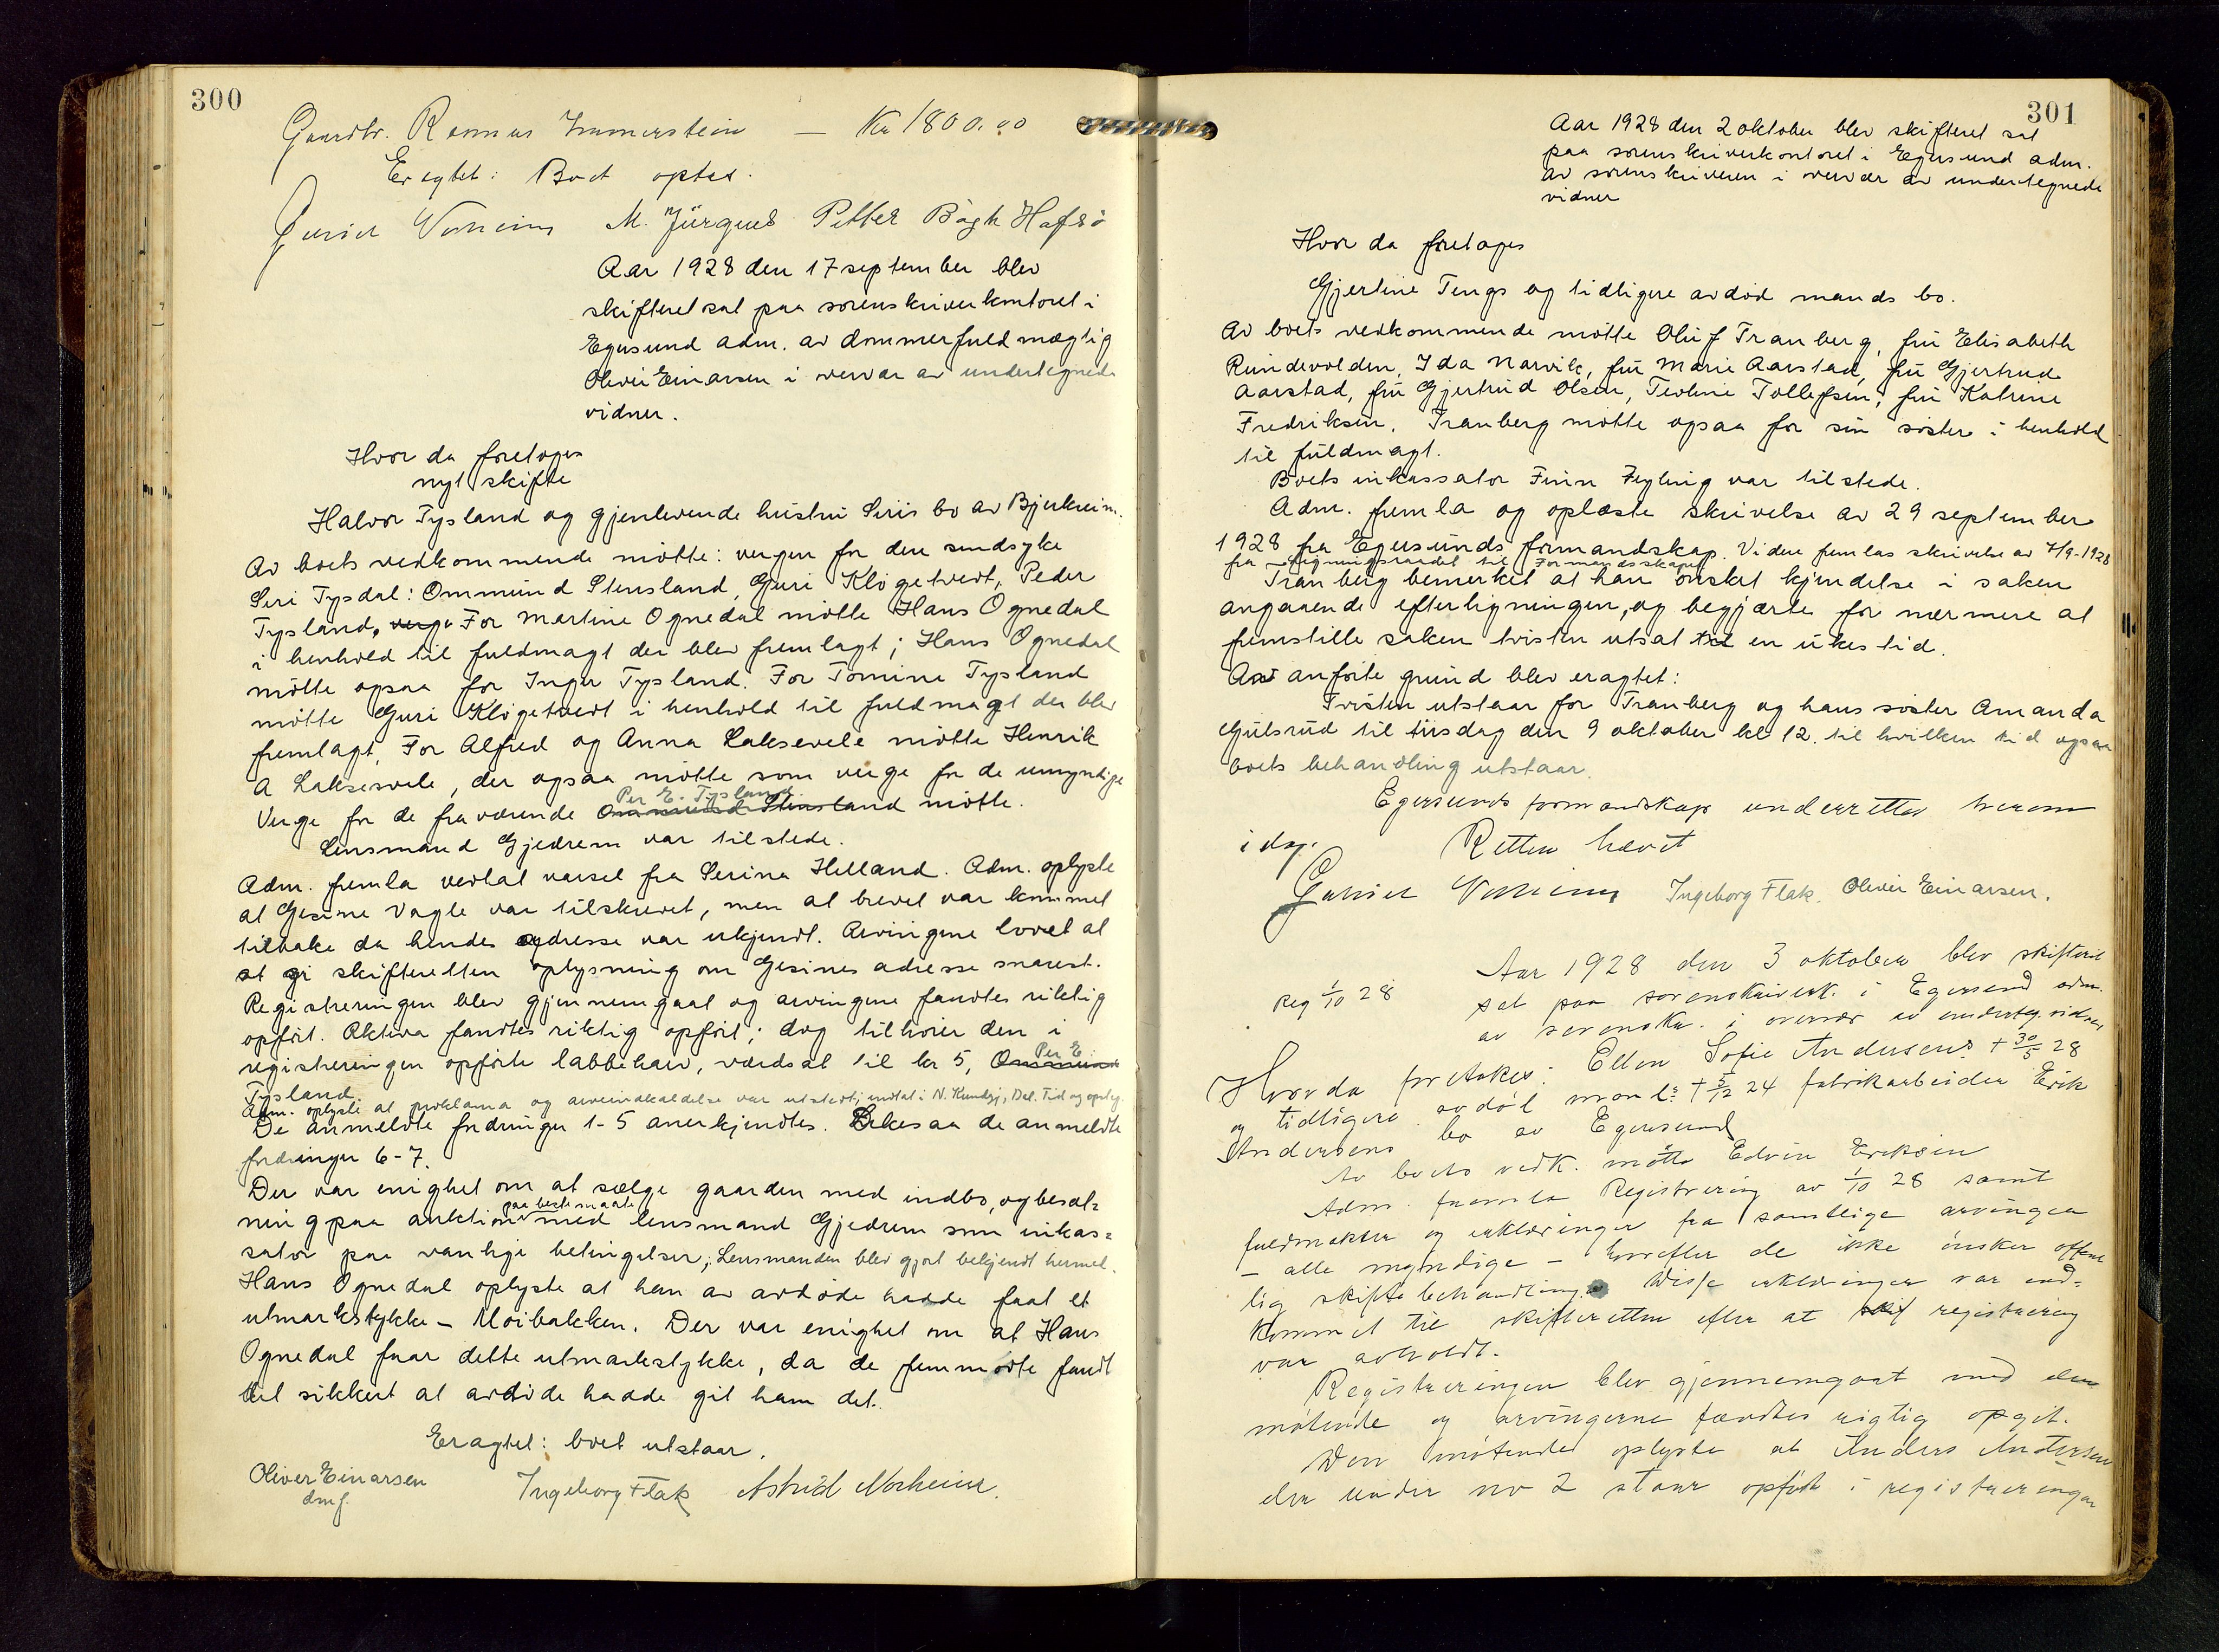 300
Gaardbr. Rasmus Immerstein — Kr 1800.00
Eragtet: Boet optas.
M. Jürgens Petter Bøgh Hafsø
Aar 1928 den 17 september blev
skifteret sat paa sorenskriverkontoret i
Egersund adm. av dommerfuldmægtig
Oliver Einarsen i overvær av undertegnede
vidner.
Hvor da foretoges
nyt skifte
Halvor Tysland og gjenlevende hustru Siris bo av Bjerkreim.
Av boets vedkommende møtte: vergen for den sindsyke
Siri Tysdal: Ommund Stensland, Guri Kløgetvedt, Peder
Tysland, verge For Martine Ognedal møtte Hans Ognedal
i henhold til fuldmagt der blev fremlagt; Hans Ognedal
møtte ogsaa for Inger Tysland. For Tomine Tysland
møtte Guri Kløgetvedt i henhold til fuldmagt der blev
fremlagt, For Alfred og Anna Laksevele møtte Henrik
A Laksesvele, der ogsaa møtte som verge for de umyndige
Per E. Tysland.
Verge for de fraværende Ommund Stensland møtte.
Lensmand Gjedrem var tilstede.
Adm. fremla vedtat varsel fra Serina Helland. Adm. oplyste
at Gesine Vagle var tilskrevet, men at brevet var kommet
tilbake da hendes adresse var ukjendt. Arvingene lovet at
at gi skifteretten oplysning om Gesines adresse snarest.
Registreringen blev gjennemgaat og arvingene fandtes riktig
opført. Aktiva fandtes riktig opført; dog tilhører den i
registreringen opførte labbeharv, værdsat til kr 5, Ommund Per E.
Tysland.
Adm. oplyste at proklama og arveindkaldelse var utstedt, indtat i N. Kundgj, Dal. Tid og opslag.
De anmeldte fordringer 1-5 anerkjendtes. Likesaa de anmeldte
fordringer 6-7.
Der var enighet om at sælge gaarden med indbo, og besæt=
paa beste maate
ning paa auktion med lensmand Gjedrem som inkas=
sator paa vanlige betingelser; Lensmanden blev gjort bekjendt hermed.
Hans Ognedal oplyste at han av avdøde hadde faat et
utmarkstykke – Moibakken. Der var enighet om at Hans
Ognedal faar dette utmarkstykke, da de fremmøtte fandt
det sikkert at avdøde hadde git ham det.
Eragtet: boet utstaar.
Oliver Einarsen
dmf.
Ingeborg Flak Astrid Norheim.
301
Aar 1928 den 2 oktober blev skifteret sat
paa sorenskriverkontoret i Egersund adm.
av sorenskriveren i overvær av undertegnede
vidner
Hvor da foretoges
Gjertine Tengs og tidligere avdød mands bo.
Av boets vedkommende møtte Oluf Tranberg, fru Elisabeth
Rundevolden, Ida Narvik, fru Marie Aarstad, fru Gjertrud
Aarstad, fru Gjertrud Olsen, Teoline Tollefsen, fru Katrine
Fredriksen. Tranberg møtte ogsaa for sin søster i henhold
til fuldmagt.
Boets inkassator Finn Feyling var tilstede.
Adm. fremla og oplæste skrivelse av 29 september
1928 fra Egersunds formandskap. Videre fremlas skrivelse av 7/9-1928
fra Ligningsraadet til Formandsskapet
Tranberg bemerket at han ønsket kjendelse i saken
angaaende efterligningen, og begjærte for nærmere at
fremstille saken tvisten utsat til en ukes tid.
Av anførte grund blev eragtet:
Tvisten utstaar for Tranberg og hans søster Amanda
Gulsrud til tirsdag den 9 oktober kl 12. til hvilken tid ogsaa
boets behandling utstaar.
Egersunds formandskap underrettes herom
i dag.
Retten hævet
Ingeborg Flak. Oliver Einarsen.
Reg 1/10 28
Aar 1928 den 3 oktober blev skifteret
sat paa sorenskriverk. i Egersund adm.
av sorenskr. i overvær av underteg. vidner
Hvor da foretokes: Ellen Sofie Andersens + 30/5 28
og tidligere avdød mands + 5/12 24 fabrikarbeider Erik
Andersens bo av Egersund
Av boets vedk. møtte Edvin Eriksen
Adm. fremla Registrering av 1/10 28 samt
fuldmakter og erklæringer fra samtlige arvinger
– alle myndige – hvorefter de ikke ønsker offent
lig skiftebehandling. Disse erklæringer var ind=
kommet til skifteretten efter at skif registrering
var avholdt.
Registreringen blev gjennemgaat med den
møtende og arvingerne fandtes rigtig opgit.
Den møtende oplyste at Anders Andersen
der under no 2 staar opført i registreringen